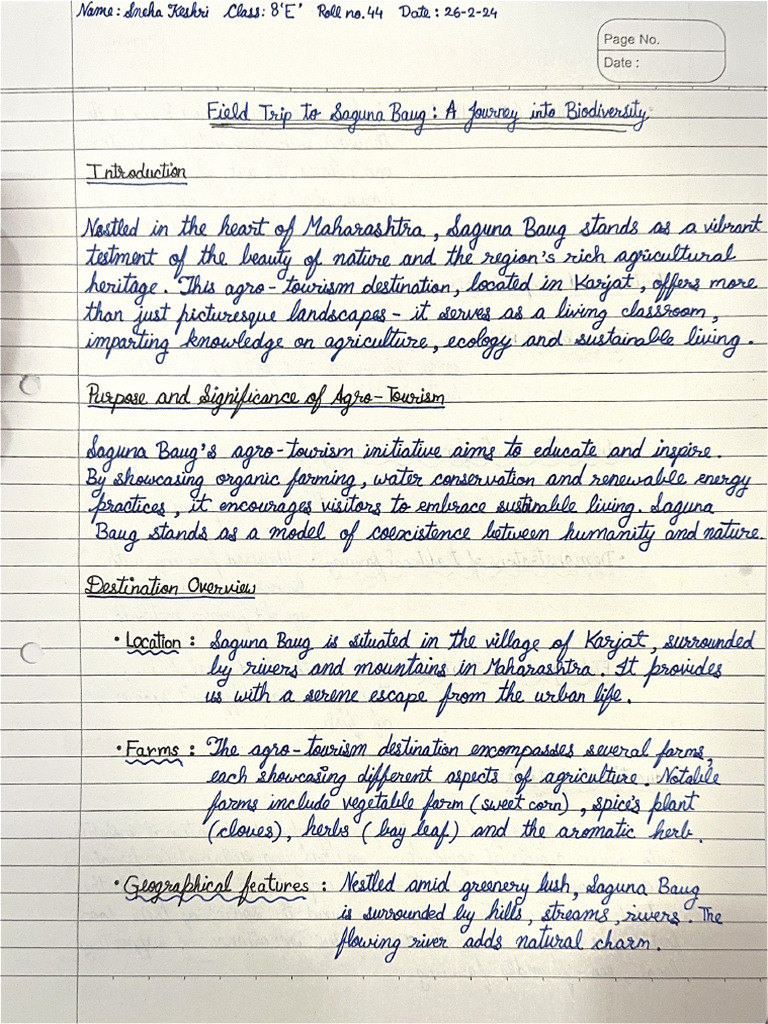 Name: Sneha Keshri Class: 8 'E' Roll no. 44 Date: 26-2-24
Page No.
Date :
Field Trip to Saguna Baug : A Journey into Biodiversity
Introduction
Nestled in the heart of Maharashtra, Saguna Baug stands as a vibrant
testment of the beauty of nature and the region's rich agricultural
heritage. This agro-tourism destination, located in Karjat, offers more
than just picturesque landscapes - it serves as a living classroom,
imparting knowledge on agriculture, ecology and sustainable living.
Purpose and Significance of Agro-Tourism
Saguna Baug's agro-tourism initiative aims to educate and inspire.
By showcasing organic farming, water conservation and renewable energy
practices, it encourages visitors to embrace sustinable living. Saguna
Baug stands as a model of coexistence between humanity and nature.
Destination Overview
• Location : Saguna Baug is situated in the village of Karjat, surrounded
by rivers and mountains in Maharashtra. It provides
us with a serene escape from the urban life.
• Farms : The agro-tourism destination encompasses several farms,
each showcasing different aspects of agriculture. Notable
farms include vegetable farm (sweet corn), spices plant
(cloves), herbs (bay leaf) and the aromatic herb.
• Geographical features : Nestled amid greenery lush, Saguna Baug
is surrounded by hills, streams, rivers. The
flowing river adds natural charm.